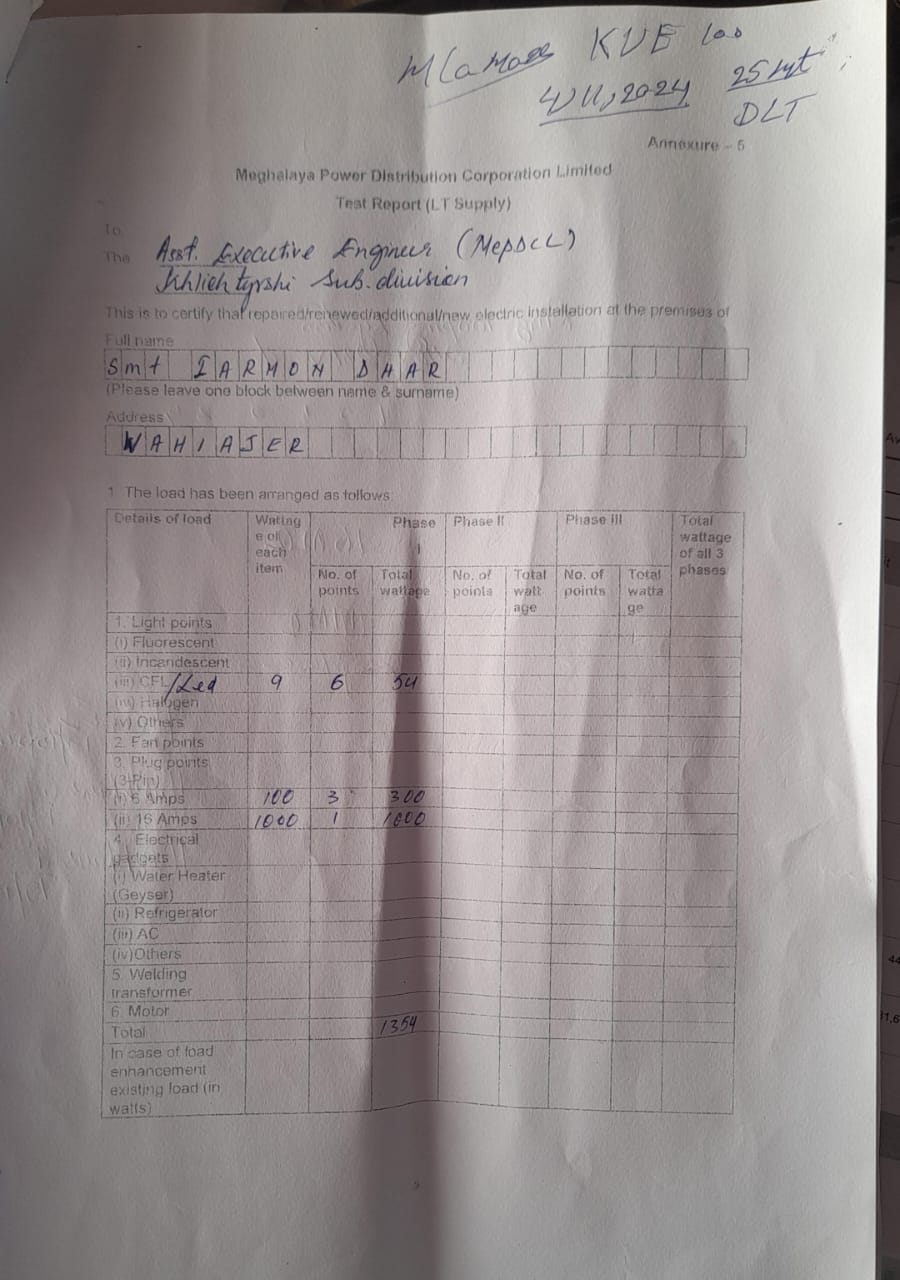 KVE 100
4/11/2024 25 mt
DLT
Annexure - 5
Meghalaya Power Distribution Corporation Limited
Test Report (LT Supply)
To,
The Asst. Executive Engineer (MePDCL)
Khliehtyrshi Sub. division
This is to certify that repaired/renewed/additional/new electric installation at the premises of
Full name
Smt IARMON DHAR
(Please leave one block between name & surname)
Address
WAHIAJER
1 The load has been arranged as follows:
Details of load Wattag e of each item Phase I Phase II Phase III Total wattage of all 3 phases
No. of points Total wattage No. of points Total watt age No. of points Total watta ge
1. Light points
(i) Fluorescent
(ii) Incandescent
(iii) CFL/Led 9 6 54
(iv) Halogen
(v) Others
2. Fan points
3. Plug points
(3-Pin)
(i) 6 Amps 100 3 300
(ii) 16 Amps 1000 1 1000
4. Electrical
gadgets
(i) Water Heater
(Geyser)
(ii) Refrigerator
(iii) AC
(iv) Others
5. Welding
transformer
6. Motor
Total 1354
In case of load
enhancement
existing load (in
watts)